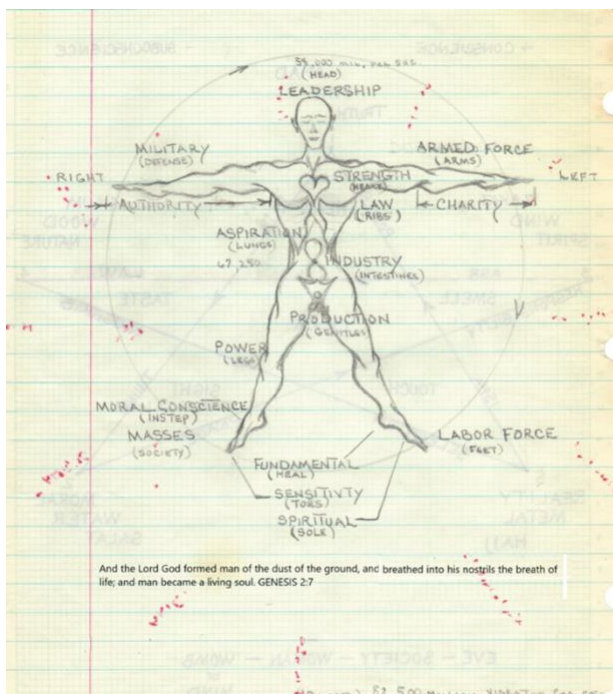 (HEAD)
LEADERSHIP
MILITARY
(DEFENSE)
ARMED FORCE
(ARMS)
RIGHT
STRENGTH
LEFT
AUTHORITY
LAW
(RIBS)
CHARITY
ASPIRATION
(LUNGS)
67,250
INDUSTRY
(INTESTINES)
PRODUCTION
POWER
(LEGS)
MORAL CONSCIENCE
(INSTEP)
MASSES
(SOCIETY)
LABOR FORCE
(FEET)
FUNDAMENTAL
(HEAL)
SENSITIVTY
(TOES)
SPIRITUAL
(SOLE)
And the Lord God formed man of the dust of the ground, and breathed into his nostrils the breath of
life; and man became a living soul. GENESIS 2:7